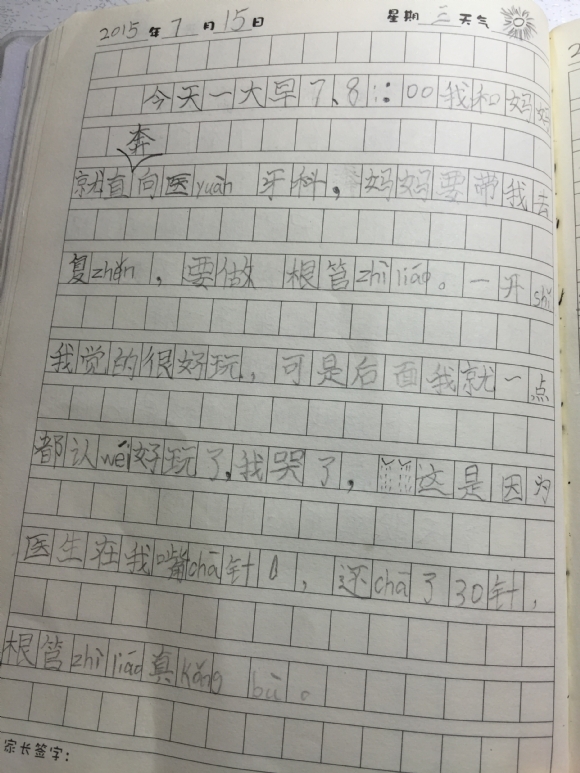 2015年7月15日 星期三天气
今天一大早7、8::00我和妈妈
奔
就直向医yuàn 牙科，妈妈要带我去
复zhěn，要做 根管zhì liáo。一开shǐ
我觉的很好玩，可是后面我就一点
都认wéi好玩了，我哭了，这是因为
医生在我嘴chā针，还chā了30针，
根管zhì liáo真kǒng bù。
家长签字：